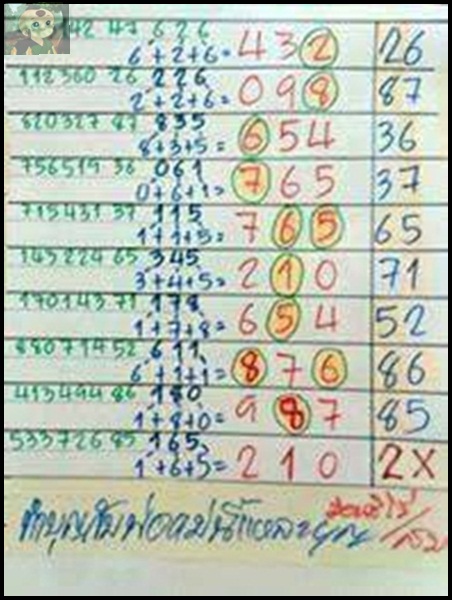 42 47 626
6+2+6= 432 26
112360 26 226
2+2+6= 098 87
620327 87 835
8+3+5= 654 36
756519 36 061
0+6+1= 765 37
715431 37 115
1+1+5= 765 65
143224 65 345
3+4+5= 210 71
170143 71 178
1+7+8= 654 52
880714 52 611
6+1+1= 876 86
413494 86 180
1+8+0= 987 85
533726 85 165
1+6+5= 210 2X